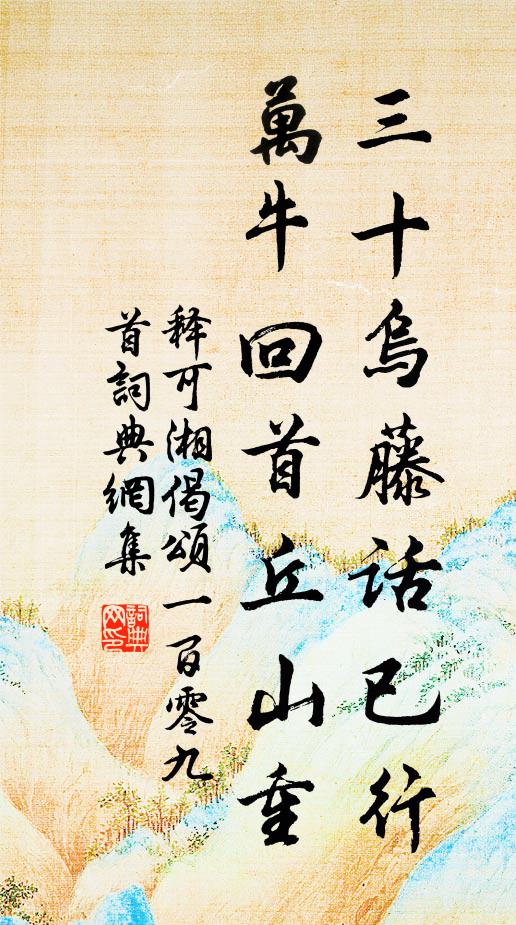 三十烏藤話已行
萬牛回首丘山重
釋可湘偈頌一百零九
首詞典網集
詞典網印